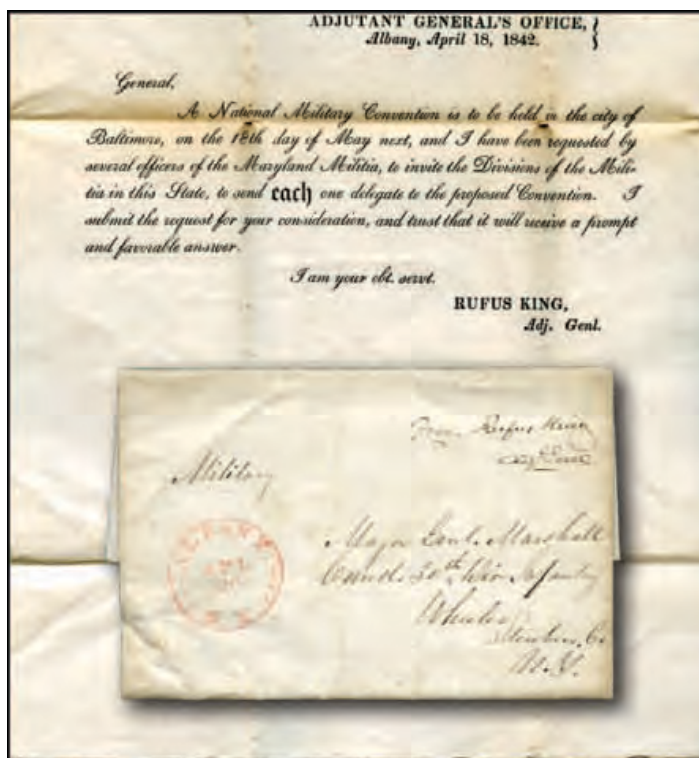 ADJUTANT GENERAL'S OFFICE,
Albany, April 18, 1842.
General,
A National Military Convention is to be held in the city of
Baltimore, on the 18th day of May next, and I have been requested by
several officers of the Maryland Militia, to invite the Divisions of the Mili-
tia in this State, to send each one delegate to the proposed Convention. I
submit the request for your consideration, and trust that it will receive a prompt
and favorable answer.
I am your obt. servt.
RUFUS KING,
Adj. Genl.
Rufus King
Military
ALBANY
N.Y.
Major Genl. Marshall
30th Infantry
Wheeler
Steuben Co
N.Y.